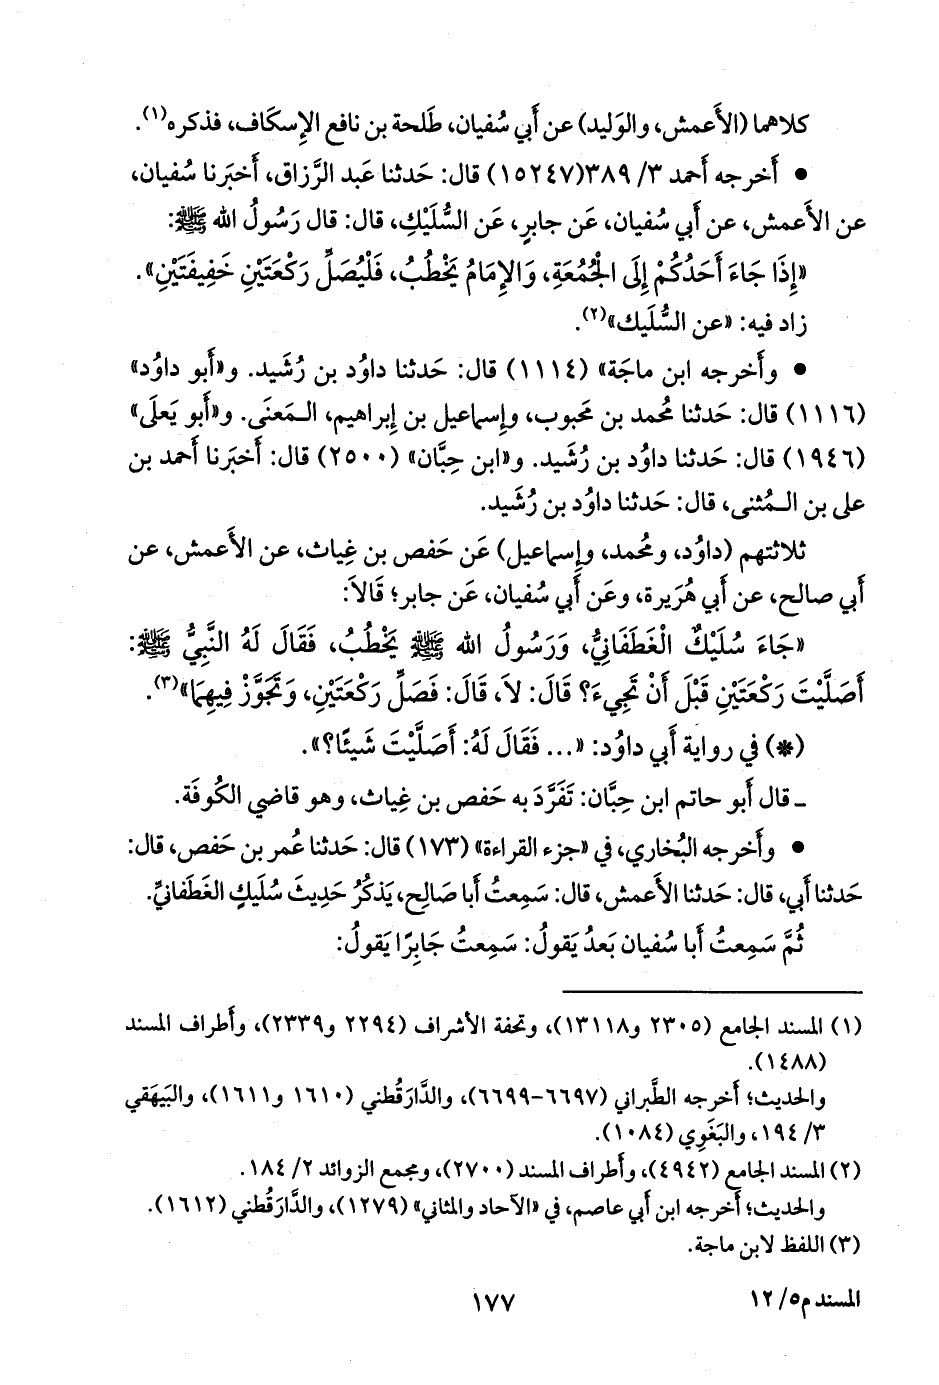 كلاهما (الأَعمش، والوَليد) عن أَبي سُفيان، طَلحة بن نافع الإِسكَاف، فذكره(١).
• أَخرجه أَحمد ٣/ ٣٨٩(١٥٢٤٧) قال: حَدثنا عَبد الرَّزاق، أَخبَرنا سُفيان،
عن الأَعمش، عن أَبي سُفيان، عَن جابرٍ، عَن السُّلَيْكِ، قال: قال رَسُولُ الله ﷺ:
«إِذَا جَاءَ أَحَدُكُمْ إِلَى الْجُمُعَةِ، وَالإِمَامُ يَخْطُبُ، فَلْيُصَلِّ رَكْعَتَيْنِ خَفِيفَتَيْنِ».
زاد فيه: «عن السُّلَيك»(٢).
• وأَخرجه ابن ماجَة» (١١١٤) قال: حَدثنا داوُد بن رُشَيد. و«أَبو داوُد»
(١١١٦) قال: حَدثنا مُحمد بن مَحبوب، وإِسماعيل بن إِبراهيم، الـمَعنَى. و«أَبو يَعلَى»
(١٩٤٦) قال: حَدثنا داوُد بن رُشَيد. و«ابن حِبَّان» (٢٥٠٠) قال: أَخبَرنا أَحمد بن
علي بن الـمُثنى، قال: حَدثنا داوُد بن رُشَيد.
ثلاثتهم (داوُد، ومُحمد، وإِسماعيل) عَن حَفص بن غِياث، عن الأَعمش، عن
أَبي صالح، عن أَبي هُرَيرة، وعَن أَبي سُفيان، عَن جابر؛ قَالاَ:
«جَاءَ سُلَيْكٌ الْغَطَفَانِيُّ، وَرَسُولُ الله ﷺ يَخْطُبُ، فَقَالَ لَهُ النَّبِيُّ ﷺ:
أَصَلَّيْتَ رَكْعَتَيْنِ قَبْلَ أَنْ تَجِيءَ؟ قَالَ: لاَ، قَالَ: فَصَلِّ رَكْعَتَيْنِ، وَتَجَوَّزْ فِيهِمَا»(٣).
(*) في رواية أَبي داوُد: «... فَقَالَ لَهُ: أَصَلَّيْتَ شَيئًا؟».
ـ قال أَبو حاتم ابن حِبَّان: تَفَرَّدَ به حَفص بن غِياث، وهو قاضي الكُوفَة.
• وأَخرجه البُخاري، في «جزء القراءة» (١٧٣) قال: حَدثنا عُمر بن حَفص، قال:
حَدثنا أَبي، قال: حَدثنا الأَعمش، قال: سَمِعتُ أَبا صَالِح، يَذكُرُ حَدِيثَ سُلَيكٍ الغَطَفانيِّ.
ثُمَّ سَمِعتُ أَبا سُفيان بَعدُ يَقولُ: سَمِعتُ جَابِرًا يَقولُ:
(١) المسند الجامع (٢٣٠٥ و١٣١١٨)، وتحفة الأشراف (٢٢٩٤ و٢٣٣٩)، وأَطراف المسند
(١٤٨٨).
والحديث؛ أَخرجه الطَّبراني (٦٦٩٧-٦٦٩٩)، والدَّارَقُطني (١٦١٠ و١٦١١)، والبَيهَقي
٣/ ١٩٤، والبَغَوِي (١٠٨٤).
(٢) المسند الجامع (٤٩٤٢)، وأَطراف المسند (٢٧٠٠)، ومجمع الزوائد ٢/ ١٨٤.
والحديث؛ أَخرجه ابن أَبي عاصم، في «الآحاد والمثاني» (١٢٧٩)، والدَّارَقُطني (١٦١٢).
(٣) اللفظ لابن ماجة.
المسند م٥/ ١٢
١٧٧